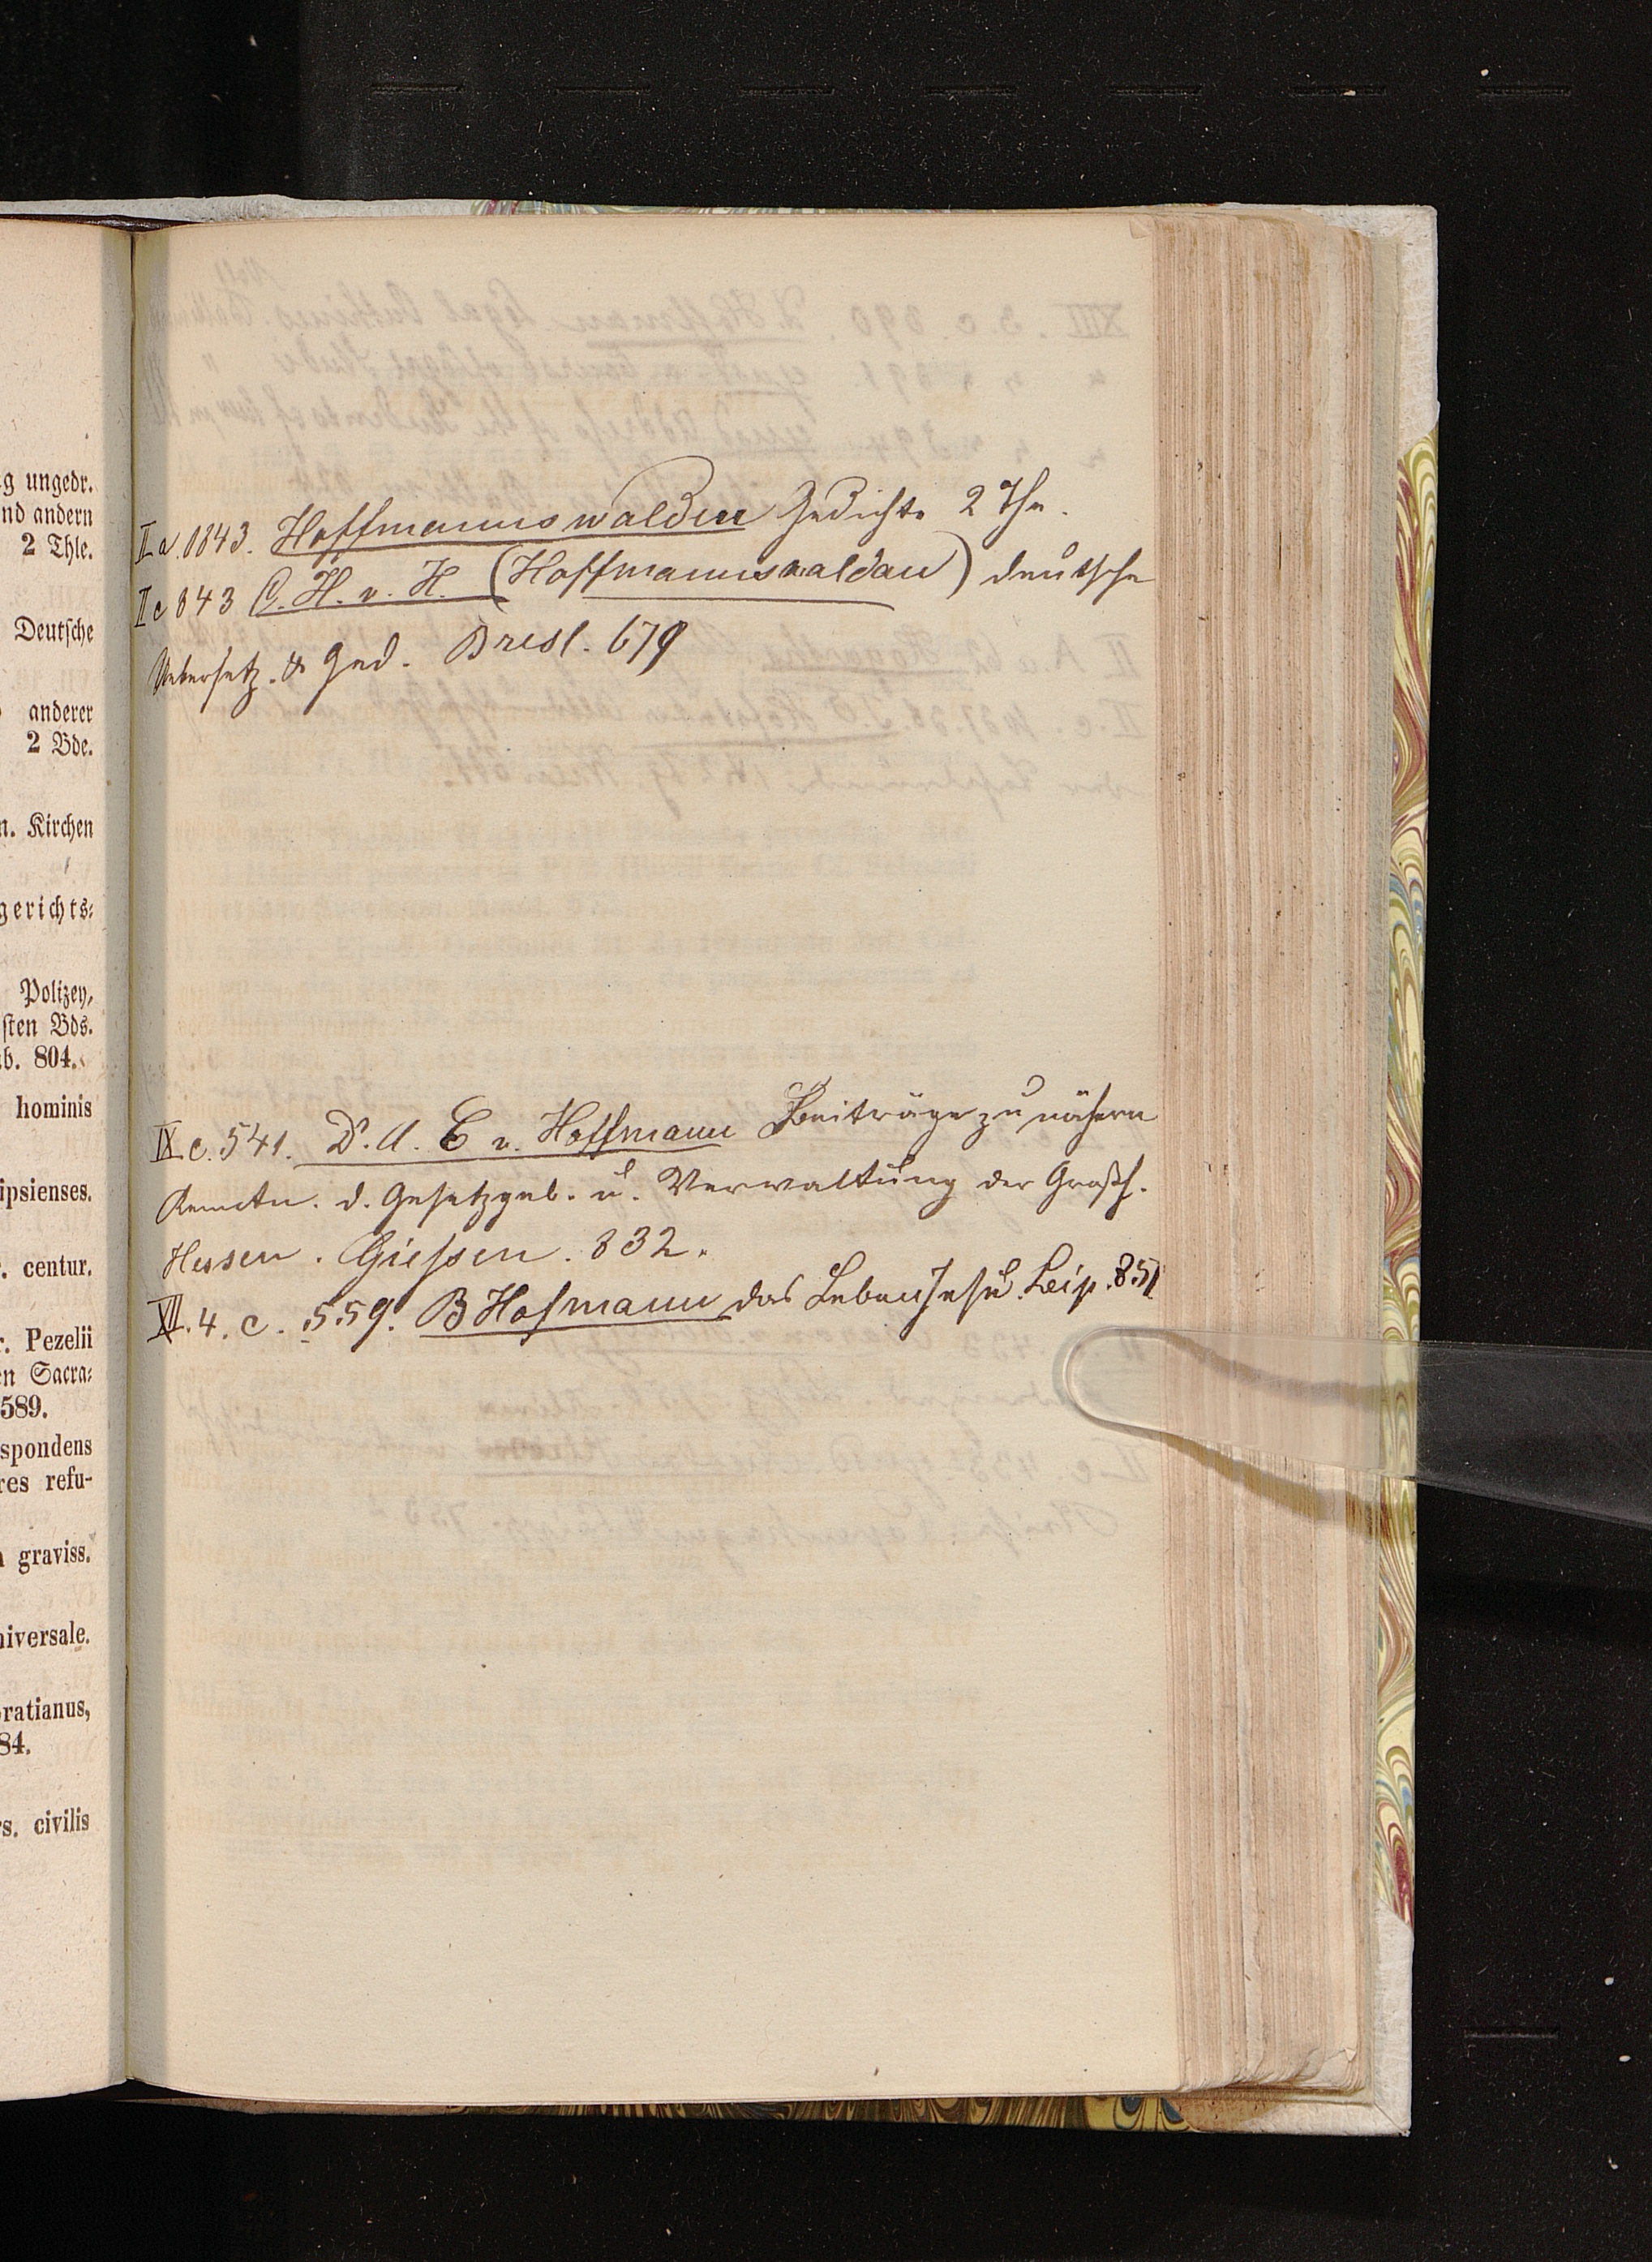 g ungedr.
nd andern
2 Thle.
Deutsche
anderer
2 Bde.
n. Kirchen
gerichts:
Polizey,
sten Bds.
b. 804.
hominis
ipsienses.
. centur.
r. Pezelii
en Sacra:
589.
spondens
res refu-
graviss.
niversale.
ratianus,
84.
s. civilis
II a. 1843. Hoffmannswalden Gedichte 2 The.
II c 843 C. H. v. H. (Hoffmannswaldau) deutsche
Uebersetz. & Ged. Bresl. 679
IX c. 541. Dr. A. E v. Hoffmann Beiträge zu nähern
Kenntn. d. Gesetzgeb. u. Verwaltung der Großh.
Hessen. Giessen. 832.
XII. 4. c. 559. B Hofmann das Leben Jesu. Leip. 851